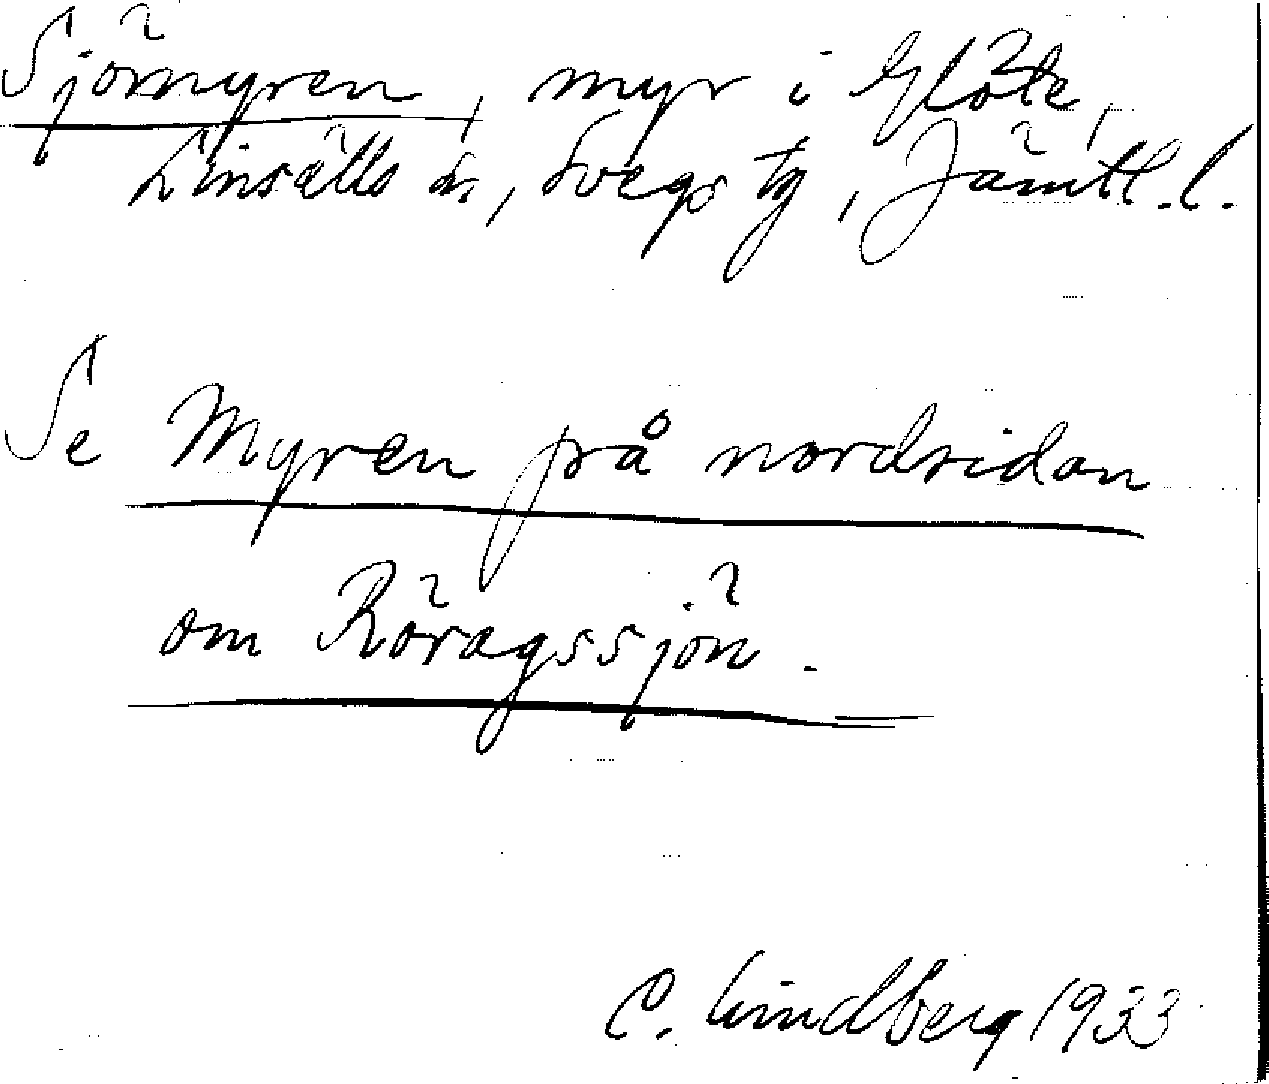 Sjömyren, myr i Glöte,
Linsälls sn, Svegs tg, Jämtl. l.
Se Myren på nordsidan
om Röragssjön.
C. Lindberg 1933